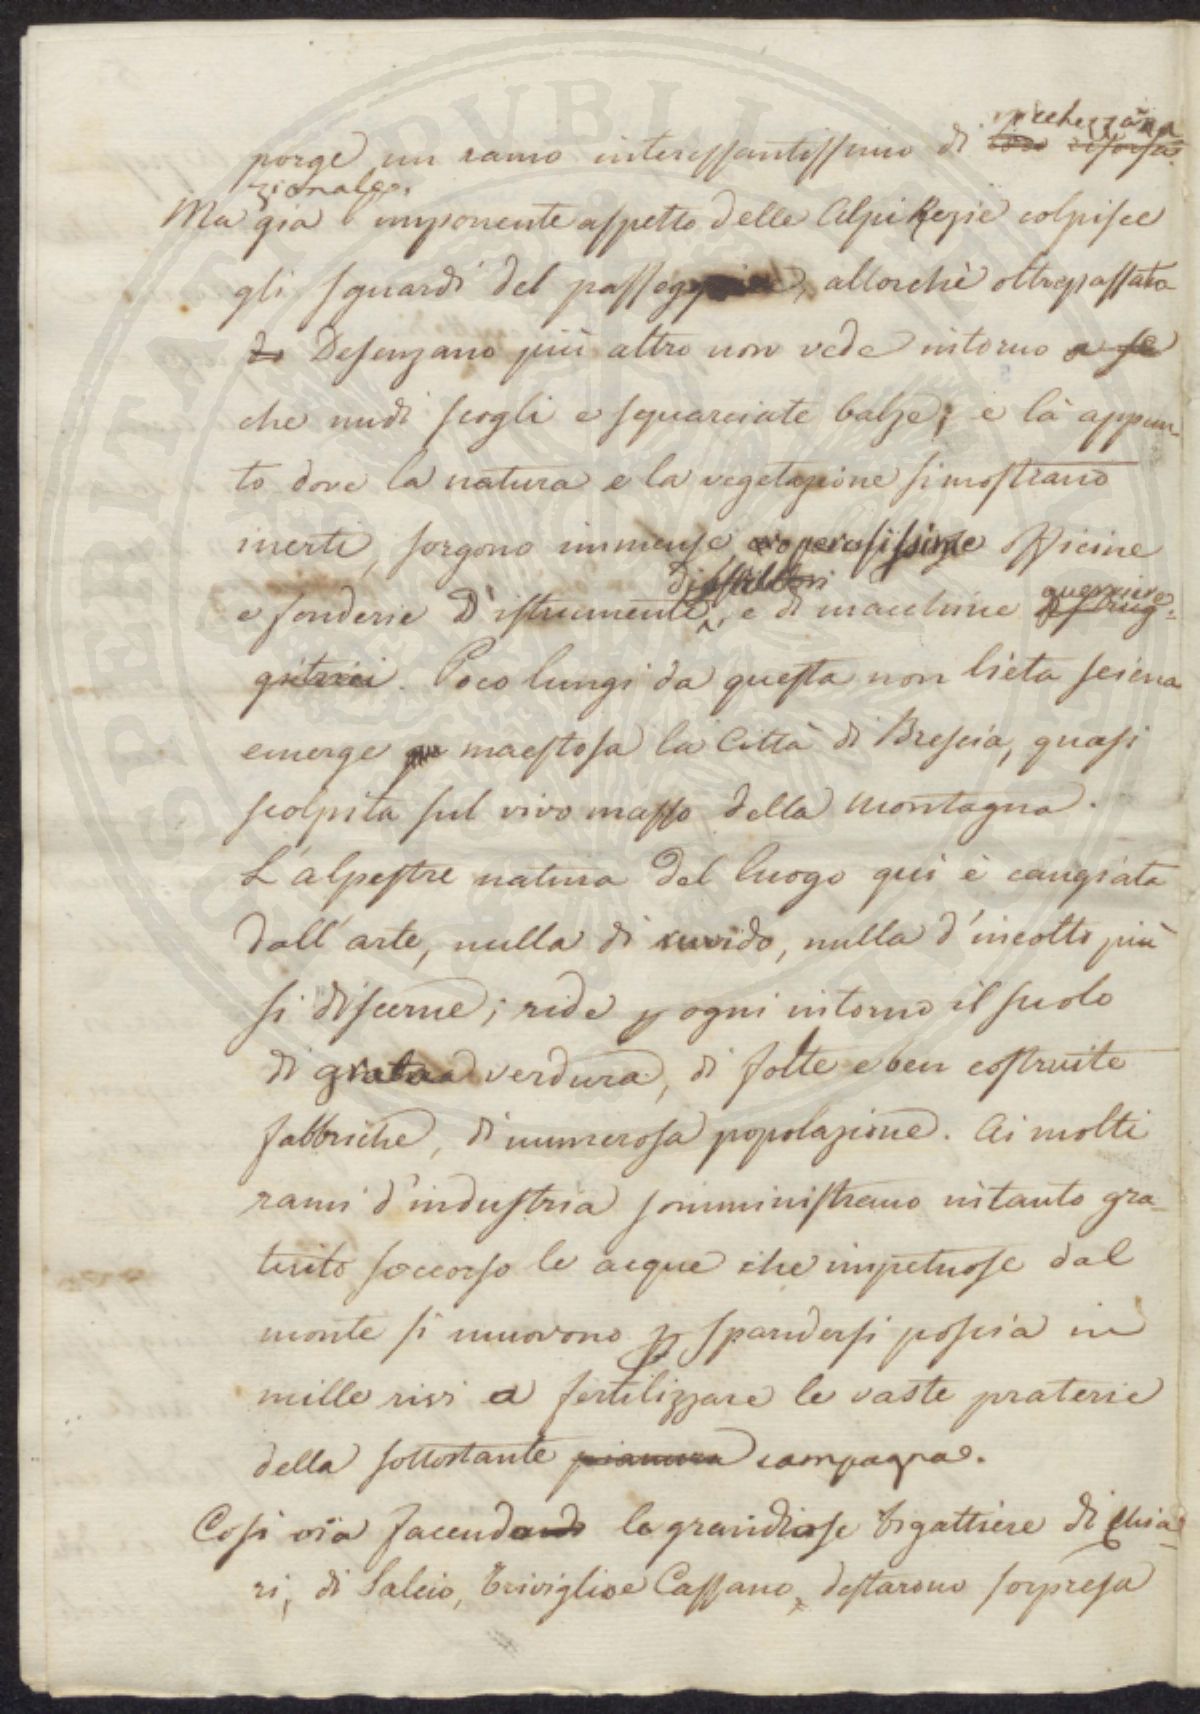 porge un ramo interessantissimo di loro risorsa ricchezza na
zionale.
Ma già l'imponente aspetto delle Alpi Rezie colpisce
gli sguardi del passeggiere, allorchè oltrepassata
di Desenzano più altro non vede intorno a se
che nudi scogli e squarciate balze; e là appun
to dove la natura e la vegetazione si mostrano
inerti, sorgono immense operosissime officine
e fonderie d'istrumenti, e di macchine guerriere
gitrici. Poco lungi da questa non lieta sciena
emerge maestosa la Città di Brescia, quasi
scolpita sul vivo masso della montagna.
L'alpestre natura del luogo quì è cangiata
dall'arte, nulla di ruvido, nulla d'incolto più
si discerne; ride p ogni intorno il suolo
di grata verdura, di folte e ben costruite
fabbriche, di numerosa popolazione. Ai molti
rami d'industria somministrano intanto gra-
tuito soccorso le acque che impetuose dal
monte si muovono p spandersi poscia in
mille rivi a fertilizzare le vaste praterie
della sottostante pianura campagna.
Così via facendo le grandiose bigattiere di Chia-
ri, di Salcio, Triviglio e Cassano, destarono sorpresa